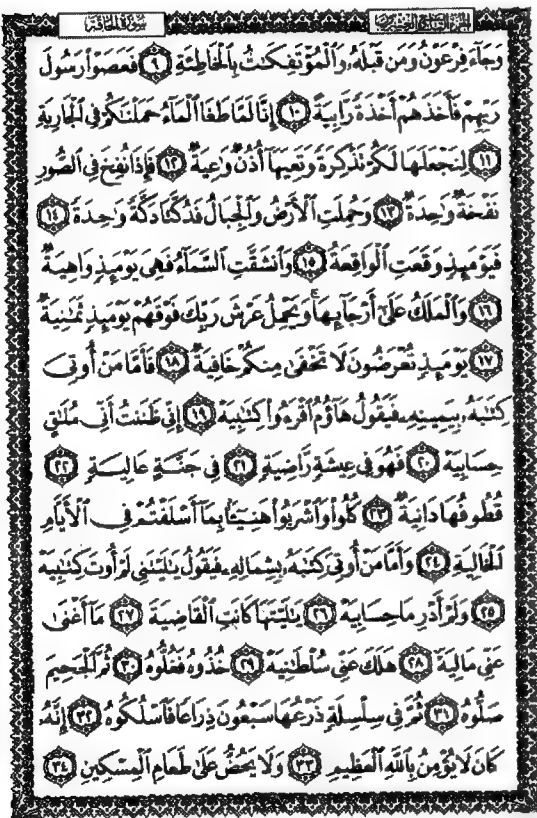 سورة الحاقة الجزء التاسع والعشرون
وَجَآءَ فِرْعَوْنُ وَمَن قَبْلَهُۥ وَٱلْمُؤْتَفِكَٰتُ بِٱلْخَاطِئَةِ ﴿٩﴾ فَعَصَوْا۟ رَسُولَ
رَبِّهِمْ فَأَخَذَهُمْ أَخْذَةً رَّابِيَةً ﴿١٠﴾ إِنَّا لَمَّا طَغَا ٱلْمَآءُ حَمَلْنَٰكُمْ فِى ٱلْجَارِيَةِ
﴿١١﴾ لِنَجْعَلَهَا لَكُمْ تَذْكِرَةً وَتَعِيَهَآ أُذُنٌ وَٰعِيَةٌ ﴿١٢﴾ فَإِذَا نُفِخَ فِى ٱلصُّورِ
نَفْخَةٌ وَٰحِدَةٌ ﴿١٣﴾ وَحُمِلَتِ ٱلْأَرْضُ وَٱلْجِبَالُ فَدُكَّتَا دَكَّةً وَٰحِدَةً ﴿١٤﴾
فَيَوْمَئِذٍ وَقَعَتِ ٱلْوَاقِعَةُ ﴿١٥﴾ وَٱنشَقَّتِ ٱلسَّمَآءُ فَهِىَ يَوْمَئِذٍ وَاهِيَةٌ
﴿١٦﴾ وَٱلْمَلَكُ عَلَىٰٓ أَرْجَآئِهَا ۚ وَيَحْمِلُ عَرْشَ رَبِّكَ فَوْقَهُمْ يَوْمَئِذٍ ثَمَٰنِيَةٌ
﴿١٧﴾ يَوْمَئِذٍ تُعْرَضُونَ لَا تَخْفَىٰ مِنكُمْ خَافِيَةٌ ﴿١٨﴾ فَأَمَّا مَنْ أُوتِىَ
كِتَٰبَهُۥ بِيَمِينِهِۦ فَيَقُولُ هَآؤُمُ ٱقْرَءُوا۟ كِتَٰبِيَهْ ﴿١٩﴾ إِنِّى ظَنَنتُ أَنِّى مُلَٰقٍ
حِسَابِيَهْ ﴿٢٠﴾ فَهُوَ فِى عِيشَةٍ رَّاضِيَةٍ ﴿٢١﴾ فِى جَنَّةٍ عَالِيَةٍ ﴿٢٢﴾
قُطُوفُهَا دَانِيَةٌ ﴿٢٣﴾ كُلُوا۟ وَٱشْرَبُوا۟ هَنِيٓـًٔۢا بِمَآ أَسْلَفْتُمْ فِى ٱلْأَيَّامِ
ٱلْخَالِيَةِ ﴿٢٤﴾ وَأَمَّا مَنْ أُوتِىَ كِتَٰبَهُۥ بِشِمَالِهِۦ فَيَقُولُ يَٰلَيْتَنِى لَمْ أُوتَ كِتَٰبِيَهْ
﴿٢٥﴾ وَلَمْ أَدْرِ مَا حِسَابِيَهْ ﴿٢٦﴾ يَٰلَيْتَهَا كَانَتِ ٱلْقَاضِيَةَ ﴿٢٧﴾ مَآ أَغْنَىٰ
عَنِّى مَالِيَهْ ﴿٢٨﴾ هَلَكَ عَنِّى سُلْطَٰنِيَهْ ﴿٢٩﴾ خُذُوهُ فَغُلُّوهُ ﴿٣٠﴾ ثُمَّ ٱلْجَحِيمَ
صَلُّوهُ ﴿٣١﴾ ثُمَّ فِى سِلْسِلَةٍ ذَرْعُهَا سَبْعُونَ ذِرَاعًا فَٱسْلُكُوهُ ﴿٣٢﴾ إِنَّهُۥ
كَانَ لَا يُؤْمِنُ بِٱللَّهِ ٱلْعَظِيمِ ﴿٣٣﴾ وَلَا يَحُضُّ عَلَىٰ طَعَامِ ٱلْمِسْكِينِ ﴿٣٤﴾